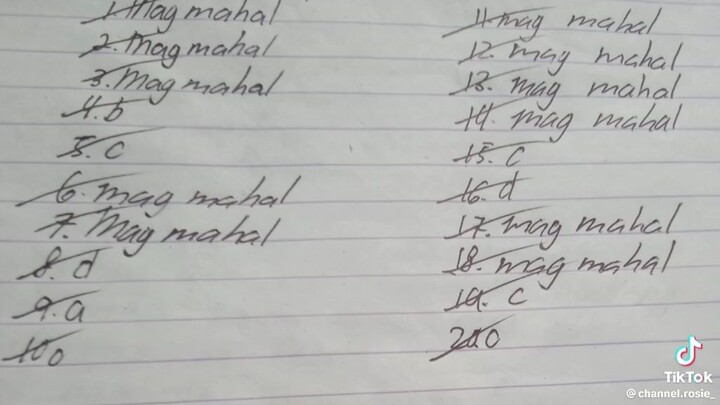 1. Mag mahal
2. Mag mahal
3. Mag mahal
4. b
5. c
6. mag mahal
7. Mag mahal
8. d
9. a
10. o
11. mag mahal
12. mag mahal
13. mag mahal
14. mag mahal
15. c
16. d
17. mag mahal
18. mag mahal
19. c
20. o
TikTok
@channel.rosie_